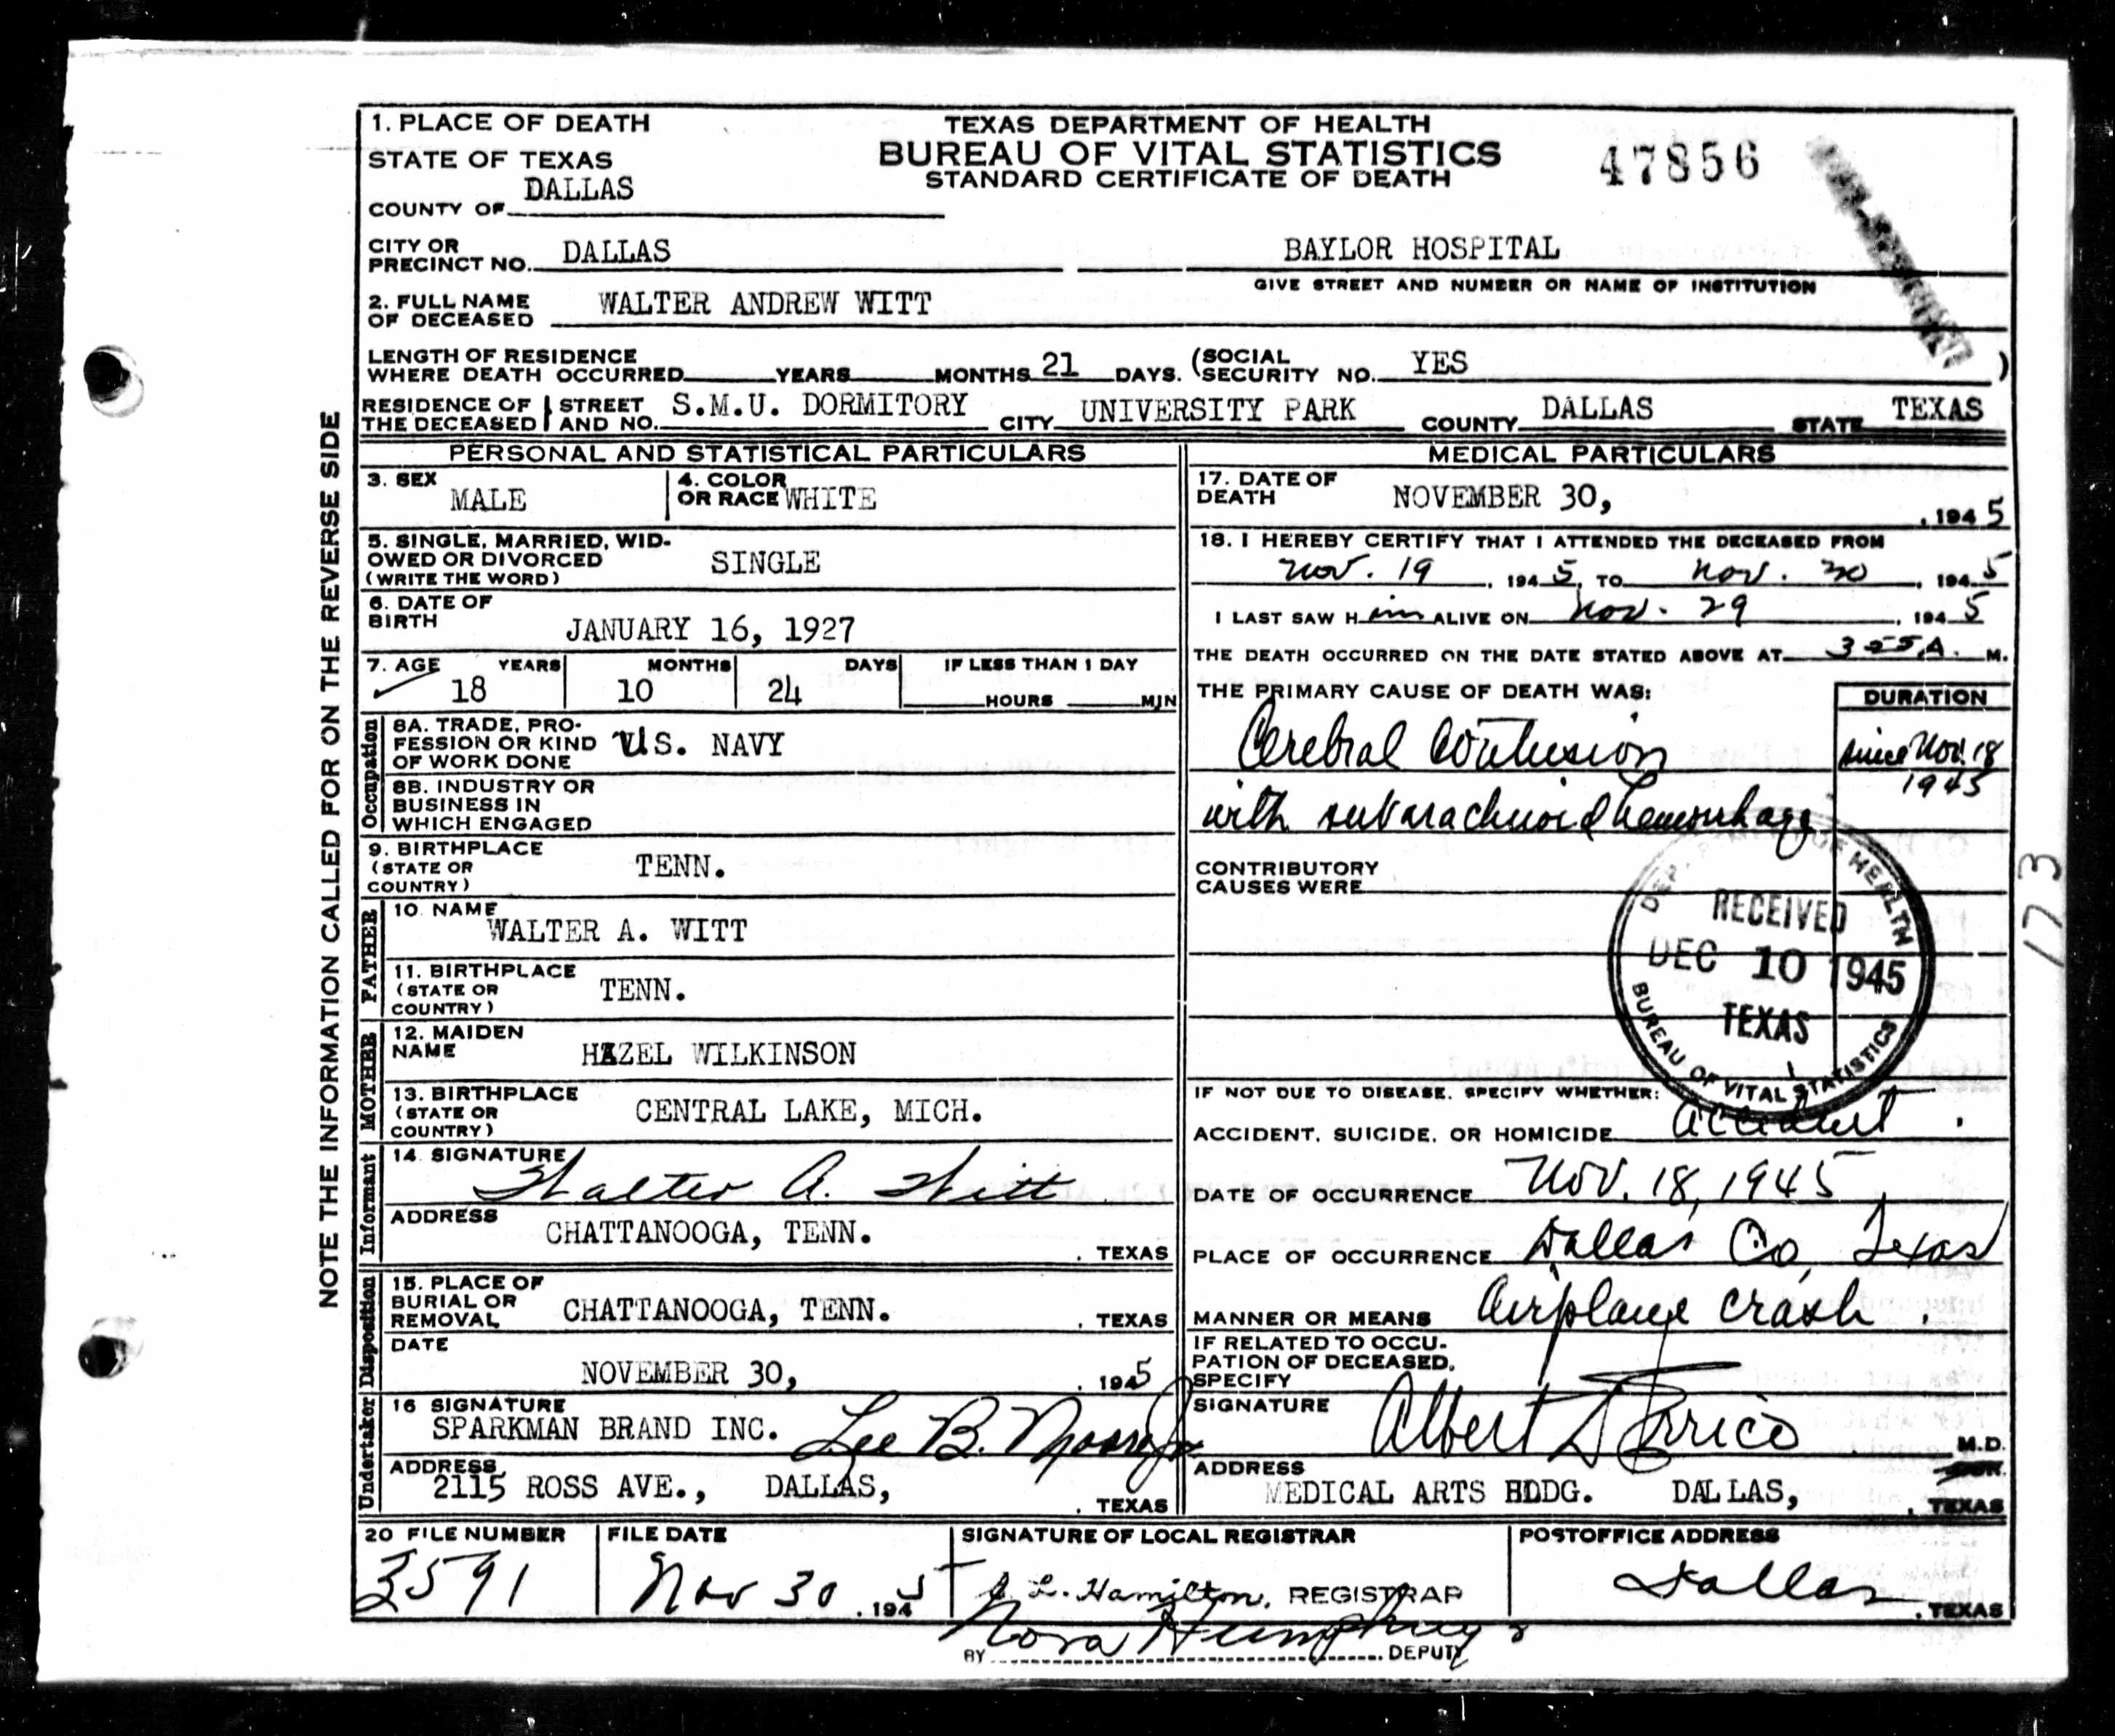 1. PLACE OF DEATH
STATE OF TEXAS
COUNTY OF DALLAS
TEXAS DEPARTMENT OF HEALTH
BUREAU OF VITAL STATISTICS
STANDARD CERTIFICATE OF DEATH
47856
CITY OR PRECINCT NO. DALLAS
BAYLOR HOSPITAL
GIVE STREET AND NUMBER OR NAME OF INSTITUTION
2. FULL NAME OF DECEASED WALTER ANDREW WITT
LENGTH OF RESIDENCE WHERE DEATH OCCURRED YEARS MONTHS 21 DAYS. (SOCIAL SECURITY NO. YES )
RESIDENCE OF THE DECEASED STREET AND NO. S.M.U. DORMITORY CITY UNIVERSITY PARK COUNTY DALLAS STATE TEXAS
NOTE THE INFORMATION CALLED FOR ON THE REVERSE SIDE
PERSONAL AND STATISTICAL PARTICULARS
3. SEX MALE
4. COLOR OR RACE WHITE
5. SINGLE, MARRIED, WIDOWED OR DIVORCED (WRITE THE WORD) SINGLE
6. DATE OF BIRTH JANUARY 16, 1927
7. AGE YEARS MONTHS DAYS IF LESS THAN 1 DAY
18 10 24 HOURS MIN
Occupation
8A. TRADE, PROFESSION OR KIND OF WORK DONE U.S. NAVY
8B. INDUSTRY OR BUSINESS IN WHICH ENGAGED
9. BIRTHPLACE (STATE OR COUNTRY) TENN.
FATHER
10. NAME WALTER A. WITT
11. BIRTHPLACE (STATE OR COUNTRY) TENN.
MOTHER
12. MAIDEN NAME HAZEL WILKINSON
13. BIRTHPLACE (STATE OR COUNTRY) CENTRAL LAKE, MICH.
Informant
14. SIGNATURE Walter A. Witt
ADDRESS CHATTANOOGA, TENN. , TEXAS
Disposition
15. PLACE OF BURIAL OR REMOVAL CHATTANOOGA, TENN. , TEXAS
DATE NOVEMBER 30, , 1945
Undertaker
16 SIGNATURE SPARKMAN BRAND INC. Lee B.
ADDRESS 2115 ROSS AVE., DALLAS, , TEXAS
MEDICAL PARTICULARS
17. DATE OF DEATH NOVEMBER 30, , 1945
18. I HEREBY CERTIFY THAT I ATTENDED THE DECEASED FROM
Nov. 19 , 1945, TO Nov. 30 , 1945
I LAST SAW Him ALIVE ON Nov. 29 , 1945
THE DEATH OCCURRED ON THE DATE STATED ABOVE AT 355 A. M.
THE PRIMARY CAUSE OF DEATH WAS: DURATION
Cerebral Contusion since Nov. 18
1945
with subarachnoid hemorrhage
CONTRIBUTORY CAUSES WERE
DEPARTMENT OF HEALTH
RECEIVED
DEC 10 1945
TEXAS
BUREAU OF VITAL STATISTICS
173
IF NOT DUE TO DISEASE, SPECIFY WHETHER:
ACCIDENT, SUICIDE, OR HOMICIDE Accident.
DATE OF OCCURRENCE Nov. 18, 1945
PLACE OF OCCURRENCE Dallas Co, Texas
MANNER OR MEANS Airplane crash.
IF RELATED TO OCCUPATION OF DECEASED, SPECIFY
SIGNATURE Albert D'Errico M.D.
ADDRESS MEDICAL ARTS BDDG. DALLAS, , TEXAS
20 FILE NUMBER FILE DATE SIGNATURE OF LOCAL REGISTRAR POSTOFFICE ADDRESS
3591 Nov 30 , 1945 J. L. Hamilton, REGISTRAR Dallas , TEXAS
BY Nora Humphreys DEPUTY